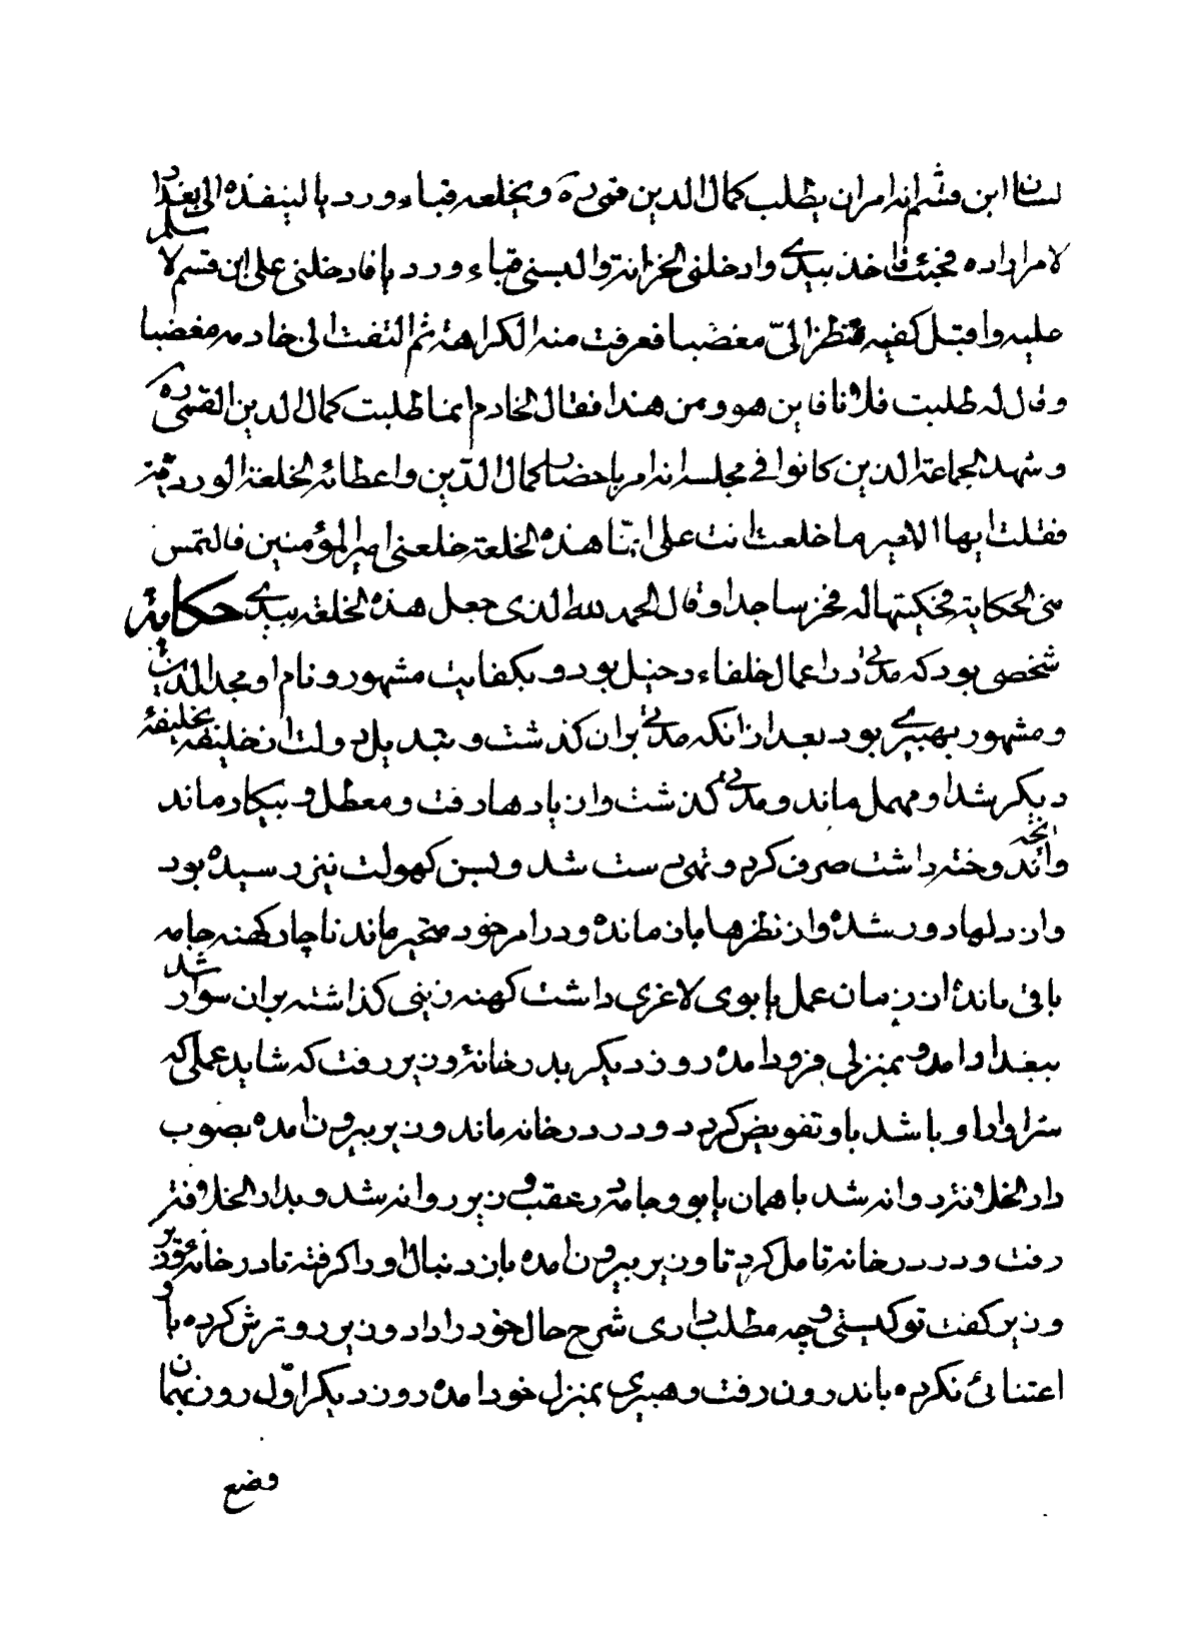 لسان ابن قشم انه امر ان يطلب كمال الدين قمى ره و يخلعه قباء ورديا لينفذه الى بغداد
لامر اراده فجئت فاخذ بيدي وادخلنى الخزانة والبسنى قباء ورديا فادخلنى على ابن قسم لا سلم
عليه واقبل كفيه فنظر الىّ مغضبا فعرفت منه الكراهة ثم التفت الى خادمه مغضبا
وقال له طلبت فلانا فاين هو ومن هذا فقال الخادم انما طلبت كمال الدين القمى ره
وشهد الجماعة الذين كانوا فى مجلسه انه امر باحضار كمال الدّين واعطائه الخلعة الوردية
فقلت ايها الامير ما خلعت انت علىّ انّما هذه الخلعة خلعنى امير المؤمنين فالتمس
منى الحكاية فحكيتها له فخر ساجدا وقال الحمد لله الذى جعل هذه الخلعة بيدي حكاية
شخصى بود كه مدتى در اعمال خلفاء دخيل بود و بكفايت مشهور و نام او مجد الدين
و مشهور بهبيرى بود بعد از انكه مدتى بران كذشت و تبديل دولت از خليفه بخليفهٔ
ديكر شد او مهمل ماند و مدتى كذشت و ان يادها رفت و معطل و بيكار ماند
و انچه اندوخته داشت صرف كرد و تهى دست شد و بسن كهولت نيز رسيده بود
و از دلها دور شده و از نظرها باز مانده و در امر خود متحير ماند ناچار كهنه جامه
باقى مانده از زمان عمل يابوى لاغرى داشت كهنه زينى كذاشته بران سوار شد
ببغداد امد و بمنزلى فرود امده روز ديكر بدر خانهٔ وزير رفت كه شايد عملى كه
سزاوار او باشد باو تفويض كرد و در در خانه ماند وزير بيرون امده بصوب
دار الخلافة روانه شد با همان يابو و جامه در عقب وزير روانه شد و بدار الخلافة
رفت و در در خانه تامل كرد تا وزير بيرون امده باز دنبال او را كرفته تا در خانهٔ وزير
وزير كفت تو كيستى و چه مطلب دارى شرح حال خود را داد وزير رو ترش كرده و باو
اعتنائى نكرده باندرون رفت و هبيرى بمنزل خود امده روز ديكر اوّل روز بهمان
وضع